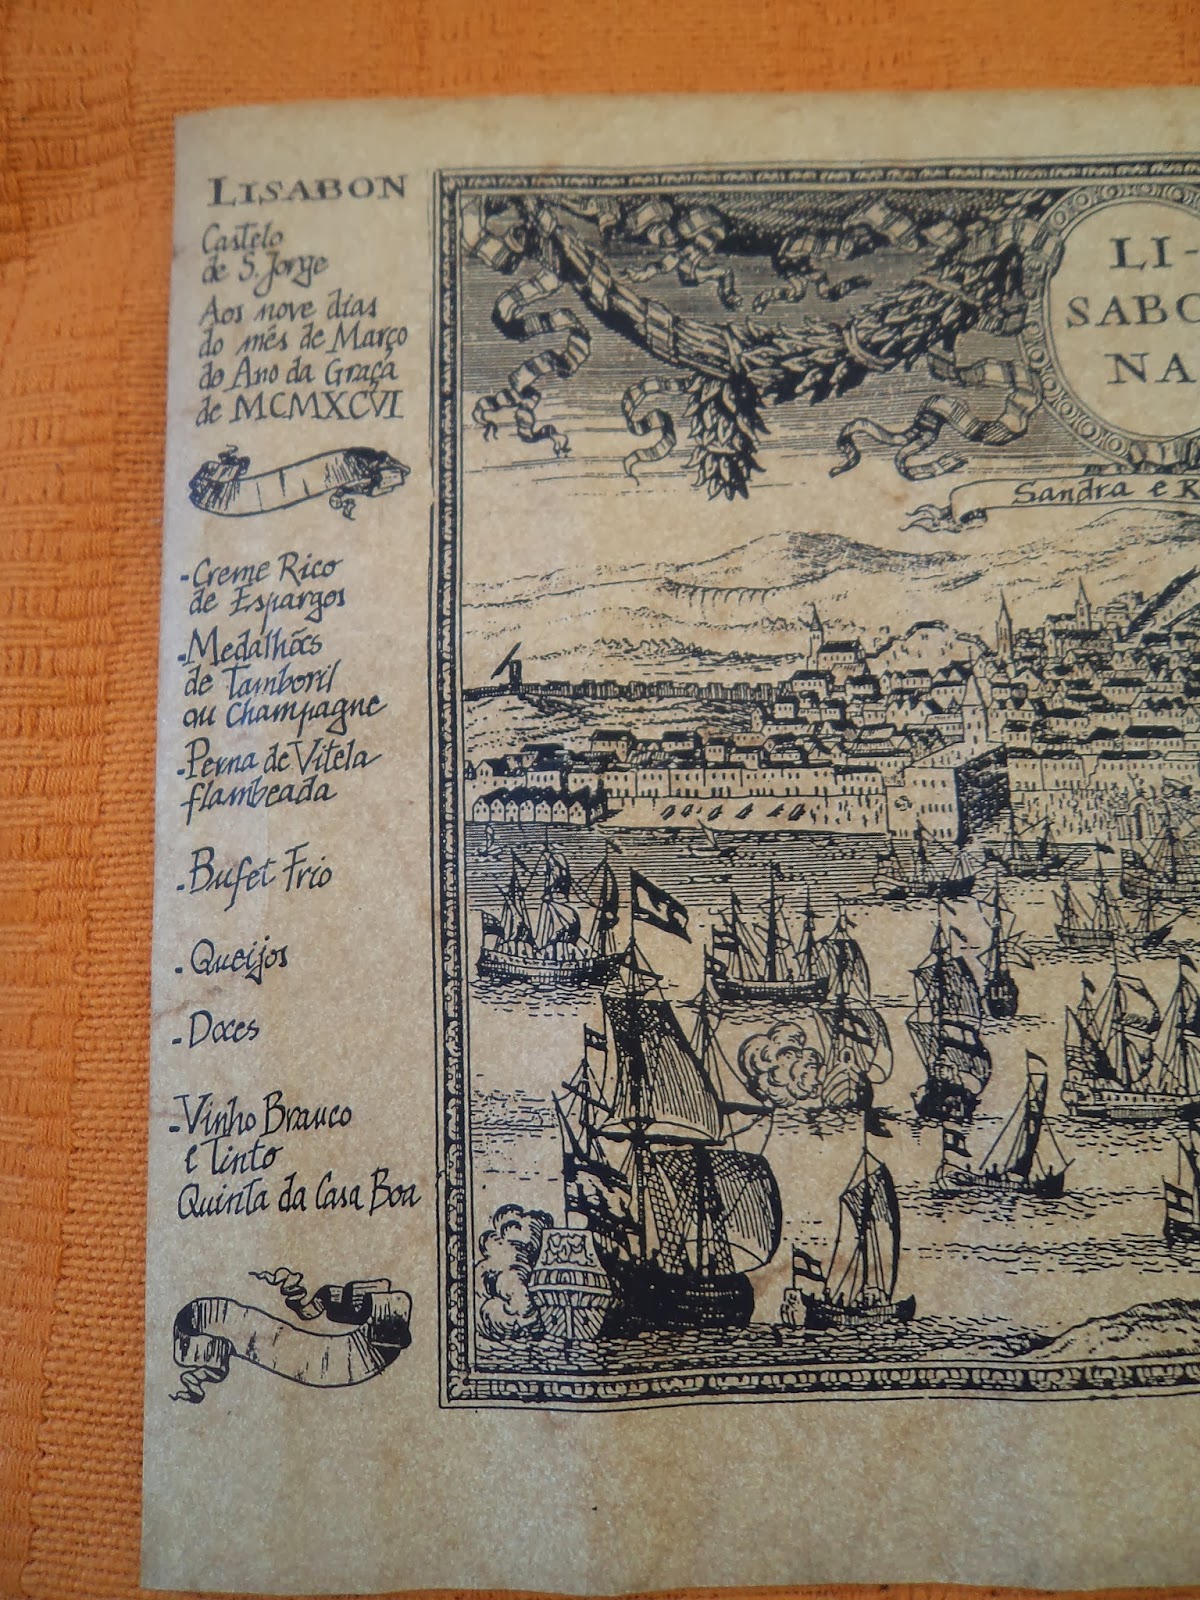 LISABON
Castelo
de S. Jorge
Aos nove dias
do mês de Março
do Ano da Graça
de MCMXCVI
-Creme Rico
de Espargos
-Medalhões
de Tamboril
au Champagne
-Perna de Vitela
flambeada
-Bufet Frio
-Queijos
-Doces
-Vinho Branco
e Tinto
Quinta da Casa Boa
LI-
SABO
NA
Sandra e R